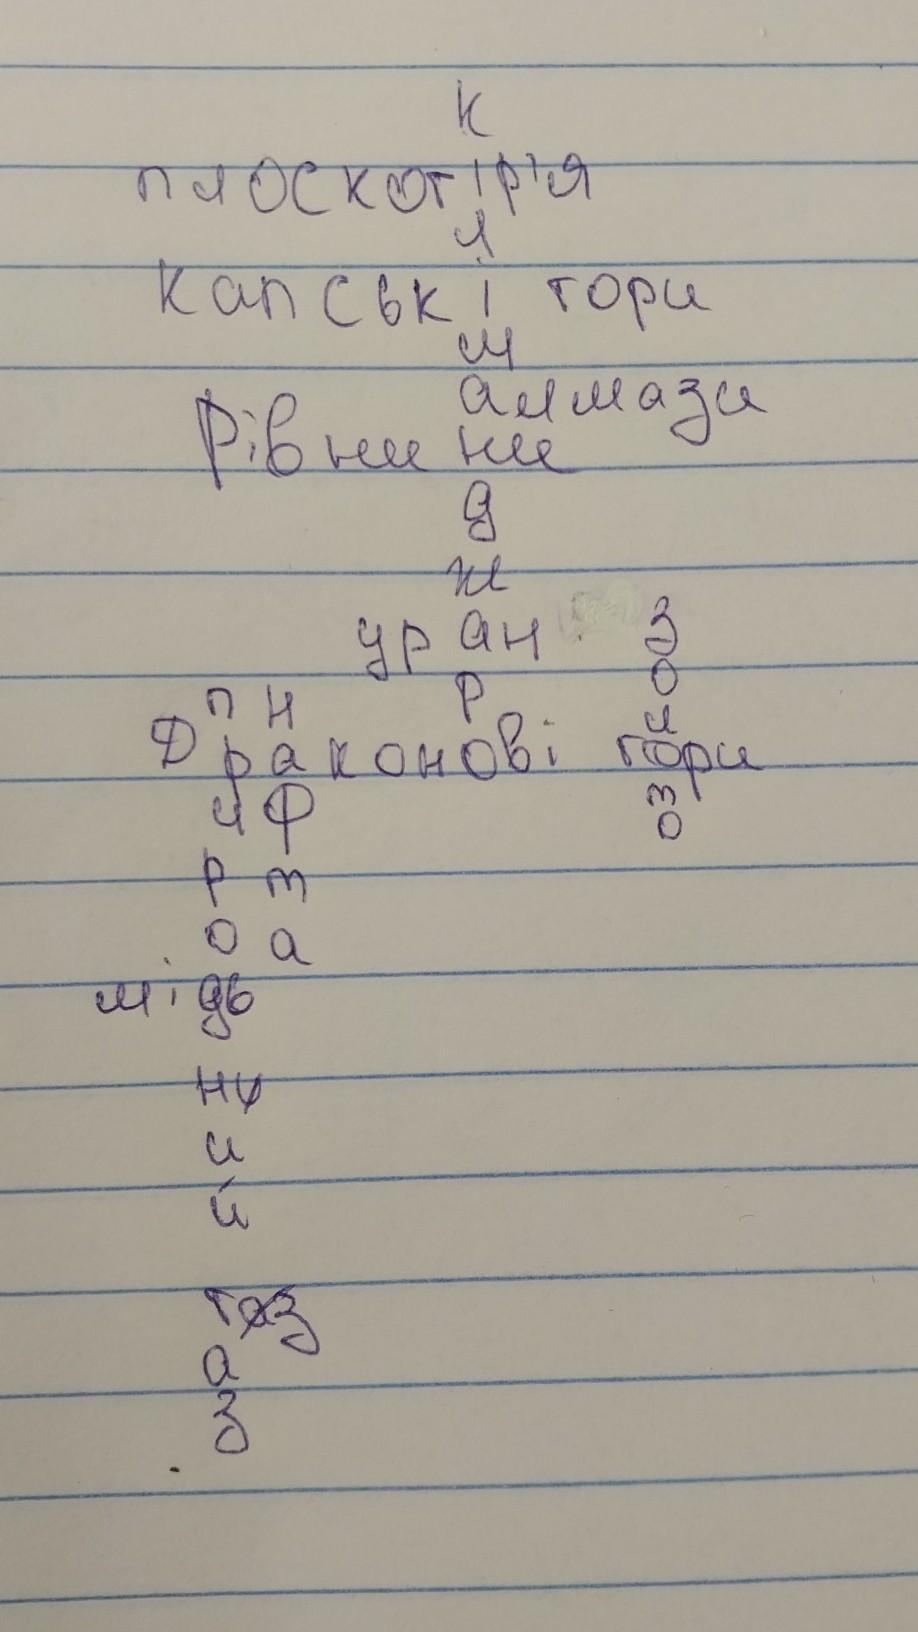 К
плоскогір'я
л
Капські гори
м
алмази
Рівнини
д
ж
уран З
п Н р О
Драконові гори л
и ф т
р т о
о а
мідь
н
и
й
газ
а
з